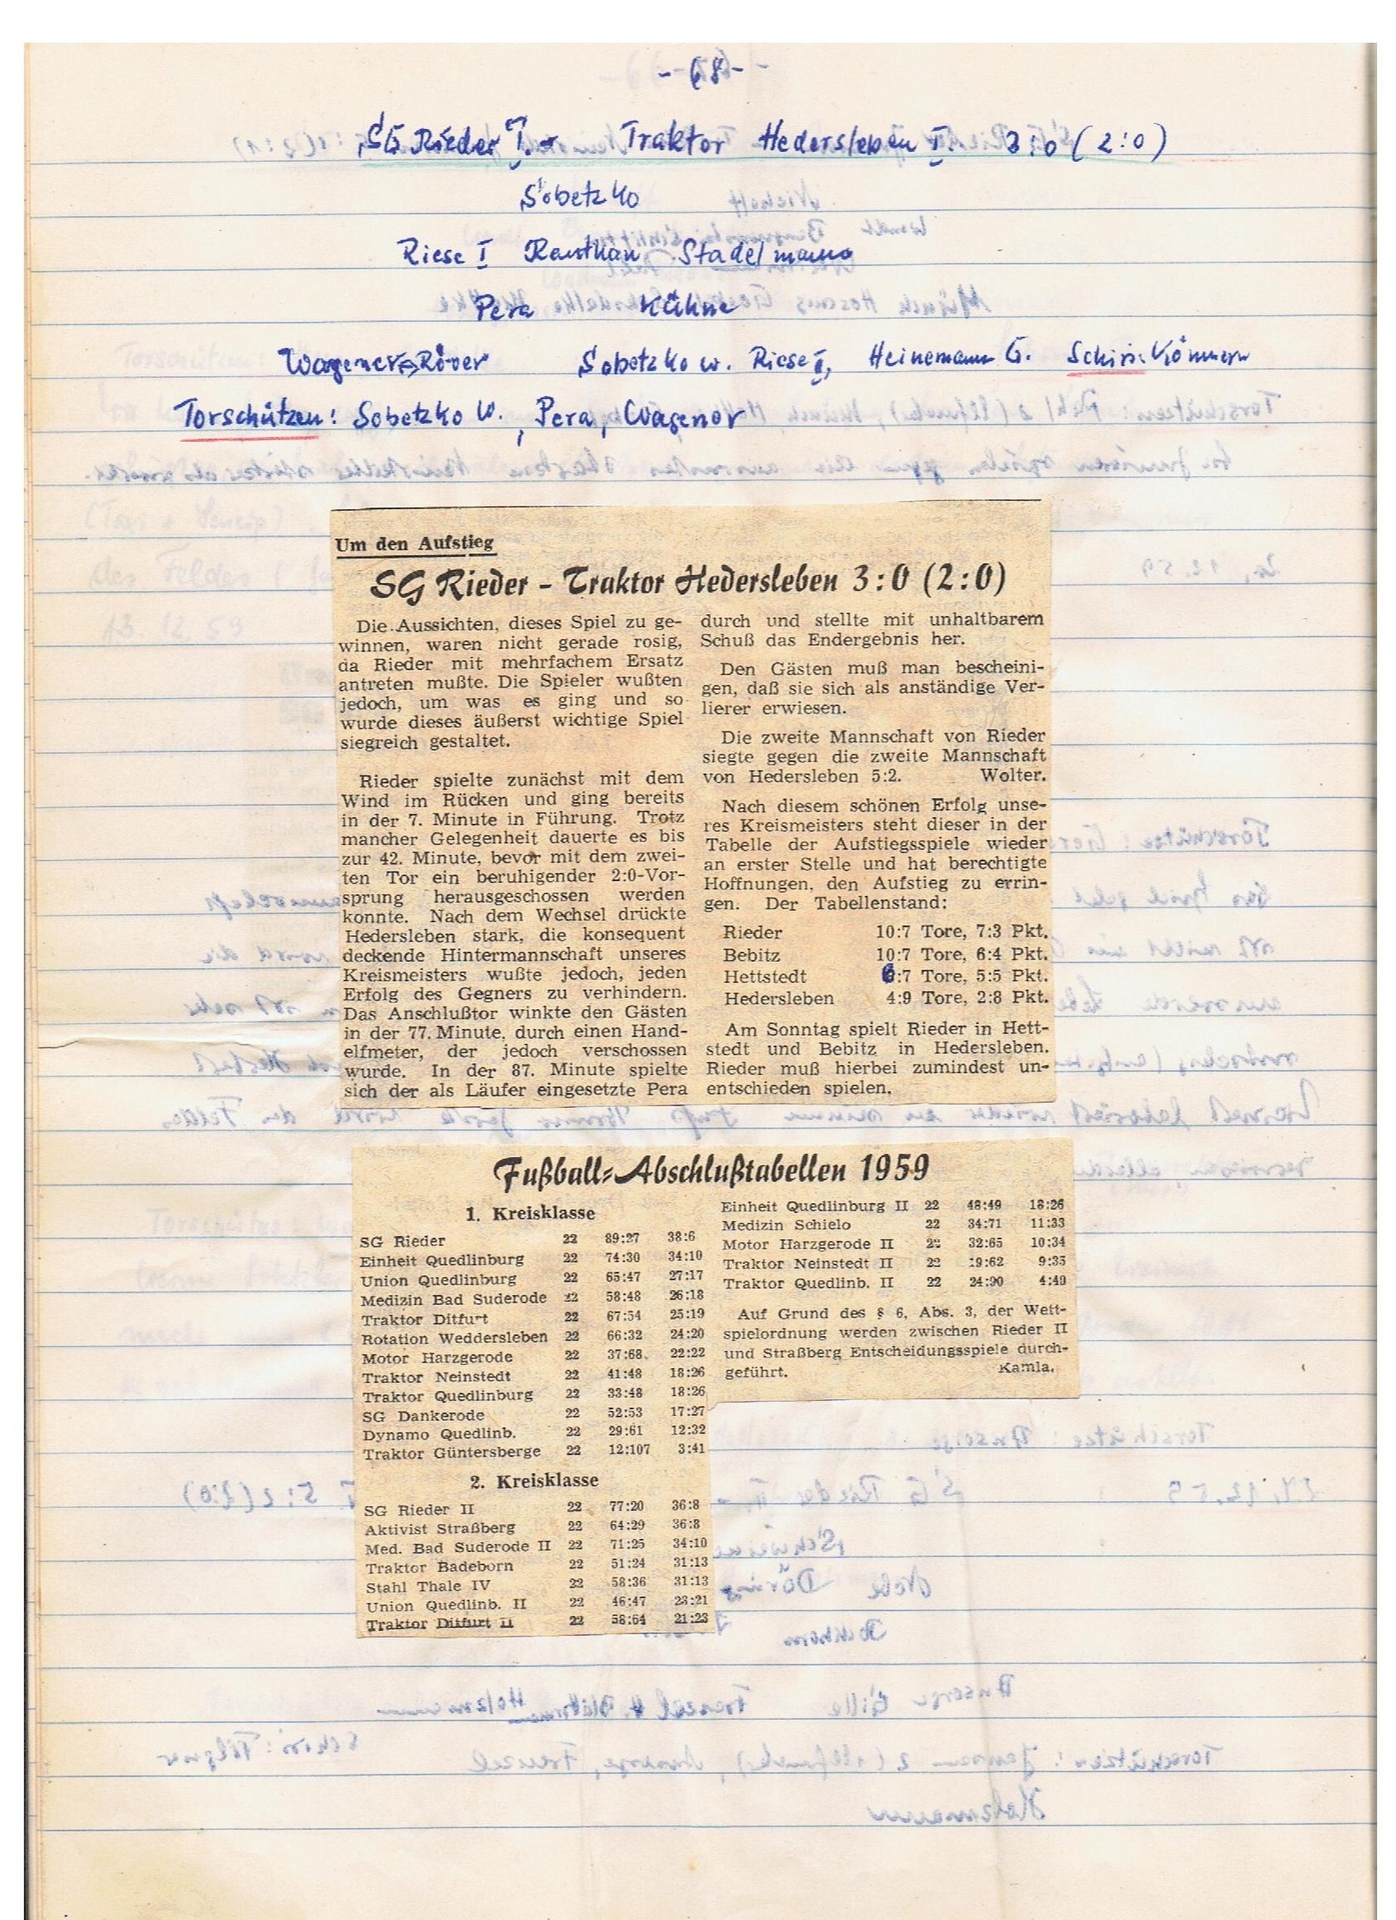 - 68 -
SG Rieder I. - Traktor Hedersleben I 3:0 (2:0)
Sobetzko
Riese I Rauthan Stadelmann
Pera Kühne
Wagener Röver Sobetzko W. Riese II, Heinemann G. Schiri: Könnern
Torschützen: Sobetzko W., Pera, Wagener
Um den Aufstieg
SG Rieder – Traktor Hedersleben 3:0 (2:0)
Die Aussichten, dieses Spiel zu ge-
winnen, waren nicht gerade rosig,
da Rieder mit mehrfachem Ersatz
antreten mußte. Die Spieler wußten
jedoch, um was es ging und so
wurde dieses äußerst wichtige Spiel
siegreich gestaltet.
Rieder spielte zunächst mit dem
Wind im Rücken und ging bereits
in der 7. Minute in Führung. Trotz
mancher Gelegenheit dauerte es bis
zur 42. Minute, bevor mit dem zwei-
ten Tor ein beruhigender 2:0-Vor-
sprung herausgeschossen werden
konnte. Nach dem Wechsel drückte
Hedersleben stark, die konsequent
deckende Hintermannschaft unseres
Kreismeisters wußte jedoch, jeden
Erfolg des Gegners zu verhindern.
Das Anschlußtor winkte den Gästen
in der 77. Minute, durch einen Hand-
elfmeter, der jedoch verschossen
wurde. In der 87. Minute spielte
sich der als Läufer eingesetzte Pera
durch und stellte mit unhaltbarem
Schuß das Endergebnis her.
Den Gästen muß man bescheini-
gen, daß sie sich als anständige Ver-
lierer erwiesen.
Die zweite Mannschaft von Rieder
siegte gegen die zweite Mannschaft
von Hedersleben 5:2. Wolter.
Nach diesem schönen Erfolg unse-
res Kreismeisters steht dieser in der
Tabelle der Aufstiegsspiele wieder
an erster Stelle und hat berechtigte
Hoffnungen, den Aufstieg zu errin-
gen. Der Tabellenstand:
Rieder 10:7 Tore, 7:3 Pkt.
Bebitz 10:7 Tore, 6:4 Pkt.
Hettstedt 6:7 Tore, 5:5 Pkt.
Hedersleben 4:9 Tore, 2:8 Pkt.
Am Sonntag spielt Rieder in Hett-
stedt und Bebitz in Hedersleben.
Rieder muß hierbei zumindest un-
entschieden spielen.
Fußball-Abschlußtabellen 1959
1. Kreisklasse
SG Rieder 22 89:27 38:6
Einheit Quedlinburg 22 74:30 34:10
Union Quedlinburg 22 65:47 27:17
Medizin Bad Suderode 22 58:48 26:18
Traktor Ditfurt 22 67:54 25:19
Rotation Weddersleben 22 66:32 24:20
Motor Harzgerode 22 37:68 22:22
Traktor Neinstedt 22 41:48 18:26
Traktor Quedlinburg 22 33:48 18:26
SG Dankerode 22 52:53 17:27
Dynamo Quedlinb. 22 29:61 12:32
Traktor Güntersberge 22 12:107 3:41
2. Kreisklasse
SG Rieder II 22 77:20 36:8
Aktivist Straßberg 22 64:29 36:8
Med. Bad Suderode II 22 71:25 34:10
Traktor Badeborn 22 51:24 31:13
Stahl Thale IV 22 58:36 31:13
Union Quedlinb. II 22 46:47 23:21
Traktor Ditfurt II 22 58:64 21:23
Einheit Quedlinburg II 22 48:49 18:26
Medizin Schielo 22 34:71 11:33
Motor Harzgerode II 22 32:65 10:34
Traktor Neinstedt II 22 19:62 9:35
Traktor Quedlinb. II 22 24:90 4:40
Auf Grund des § 6, Abs. 3, der Wett-
spielordnung werden zwischen Rieder II
und Straßberg Entscheidungsspiele durch-
geführt. Kamla.